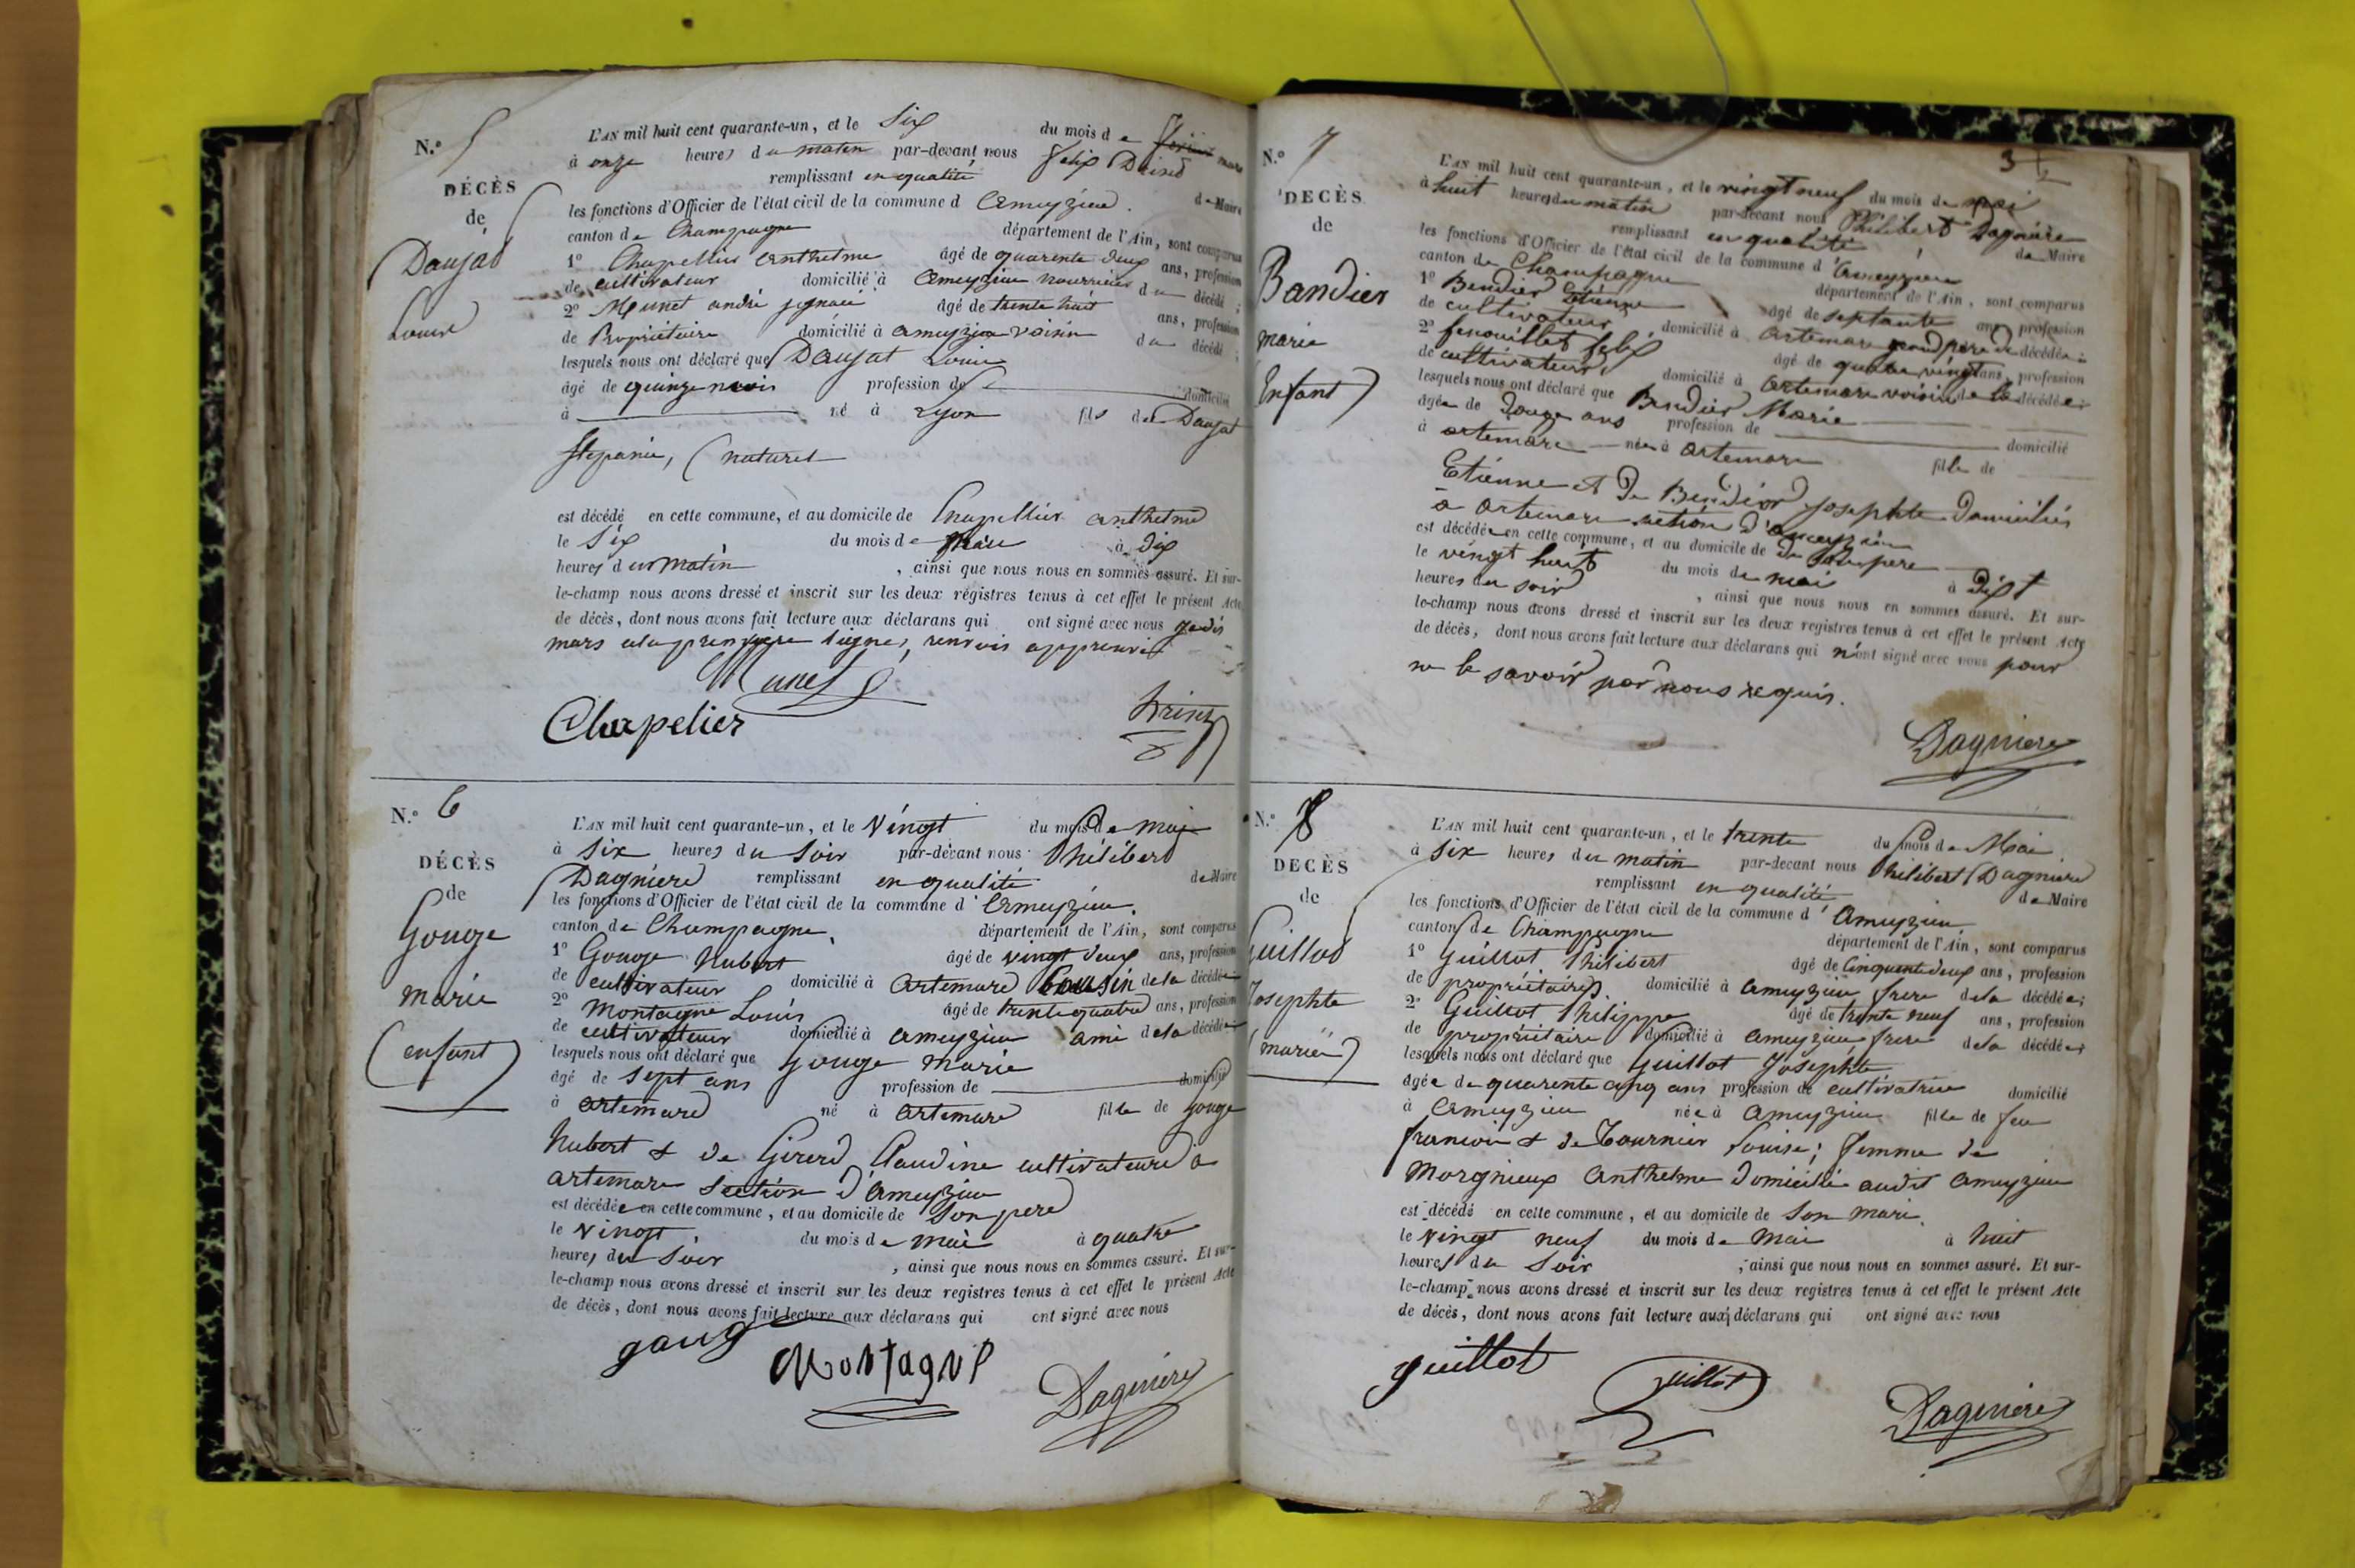 N.° 5
DÉCÈS
de
Daujat
Louis
L'AN mil huit cent quarante-un, et le Six du mois de mars
à onze heures du matin par-devant nous felix
remplissant en qualité de Maire
les fonctions d'Officier de l'état civil de la commune d Ameyzieu.
canton de Champagne département de l'Ain, sont comparus
1° Chapellier anthelme âgé de quarente deux ans, profession
de cultivateur domicilié à Ameyzieu nourricier du décédé;
2° Munet andré âgé de trente huit ans, profession
de Propriétaire domicilié à ameyzieu voisin du décédé;
lesquels nous ont déclaré que Daujat Louis
âgé de quinze mois profession de domicilié
à né à Lyon fils de Daujat
Stepanie, (naturel
est décédé en cette commune, et au domicile de Chapellier anthelme
le Six du mois de mars à dix
heures du matin, ainsi que nous nous en sommes assuré. Et sur-
le-champ nous avons dressé et inscrit sur les deux régistres tenus à cet effet le présent Acte
de décès, dont nous avons fait lecture aux déclarans qui ont signé avec nous
mars a la ligne, renvoi approuvé
Munet
Chapelier
N.° 6
DÉCÈS
de
Gouge
marie
(enfant)
L'AN mil huit cent quarante-un, et le Vingt du mois de mai
à Six heures du Soir par-dévant nous Philibert
Dagniere remplissant en qualité de Maire
les fonctions d'Officier de l'état civil de la commune d'Ameyzieu.
canton de Champagne, département de l'Ain, sont comparus
1° Gouge hubert âgé de vingt deux ans, profession
de cultivateur domicilié à Artemare Cousin de la décédée
2° Montagne Louis âgé de trente quatre ans, profession
de cultivateur domicilié à ameyzieu ami de la décédée
lesquels nous ont déclaré que Gouge marie
âgé de sept ans profession de domicilié
à artemare né à artemare fille de gouge
hubert & de Girerd Claudine cultivateurs à
artemare section d'Ameyzieu
est décédée en cette commune, et au domicile de Son pere
le vingt du mois de mai à quatre
heures du Soir, ainsi que nous nous en sommes assuré. Et sur-
le-champ nous avons dressé et inscrit sur les deux registres tenus à cet effet le présent Acte
de décès, dont nous avons fait lecture aux déclarans qui ont signé avec nous
gouge
Montagne
Dagniere
N.° 7
DÉCÈS
de
Bandier
marie
(Enfant)
L'AN mil huit cent quarante-un, et le vingt neuf du mois de mai
à huit heures du matin par-devant nous Philibert Dagniere
remplissant en qualité de Maire
les fonctions d'Officier de l'état civil de la commune d'Ameyzieu
canton de Champagne département de l'Ain, sont comparus
1° Bendier Etienne âgé de septante ans, profession
de cultivateur domicilié à artemare grand père de décédée;
2° fenouillet felix âgé de quatre vingt ans, profession
de cultivateur domicilié à artemare voisin de la décédée;
lesquels nous ont déclaré que Bendier Marie
âgée de douze ans profession de domicilié
à artemare née à artemare fille de
Etienne et de Bendier Josephte domiciliés
à artemare section d'ameyzieu
est décédée en cette commune, et au domicile de de son pere
le vingt huit du mois de mai à sept
heures du soir, ainsi que nous nous en sommes assuré. Et sur-
le-champ nous avons dressé et inscrit sur les deux registres tenus à cet effet le présent Acte
de décès, dont nous avons fait lecture aux déclarans qui n'ont signé avec nous pour
ne le savoir par nous requis.
Dagniere
N.° 8
DÉCÈS
de
Guillod
Josephte
(mariée)
L'AN mil huit cent quarante-un, et le trente du mois de Mai
à six heures du matin par-devant nous Philibert Dagniere
remplissant en qualité de Maire
les fonctions d'Officier de l'état civil de la commune d'Ameyzieu
canton de Champagne département de l'Ain, sont comparus
1° Guillot Philibert âgé de Cinquante deux ans, profession
de propriétaire domicilié à ameyzieu frere de la décédée;
2° Guillot Philippe âgé de trente neuf ans, profession
de propriétaire domicilié à ameyzieu frere de la décédée;
lesquels nous ont déclaré que Guillot Josephte
âgée de quarente cinq ans profession de cultivatrice domicilié
à Ameyzieu née à Ameyzieu fille de feu
francois & de Tournier Louise; femme de
Morgnieux Anthelme domicilié audit Ameyzieu
est décédé en cette commune, et au domicile de Son mari.
le vingt neuf du mois de Mai à huit
heures du Soir, ainsi que nous nous en sommes assuré. Et sur-
le-champ nous avons dressé et inscrit sur les deux registres tenus à cet effet le présent Acte
de décès, dont nous avons fait lecture aux déclarans qui ont signé avec nous
guillot
guillot
Dagniere